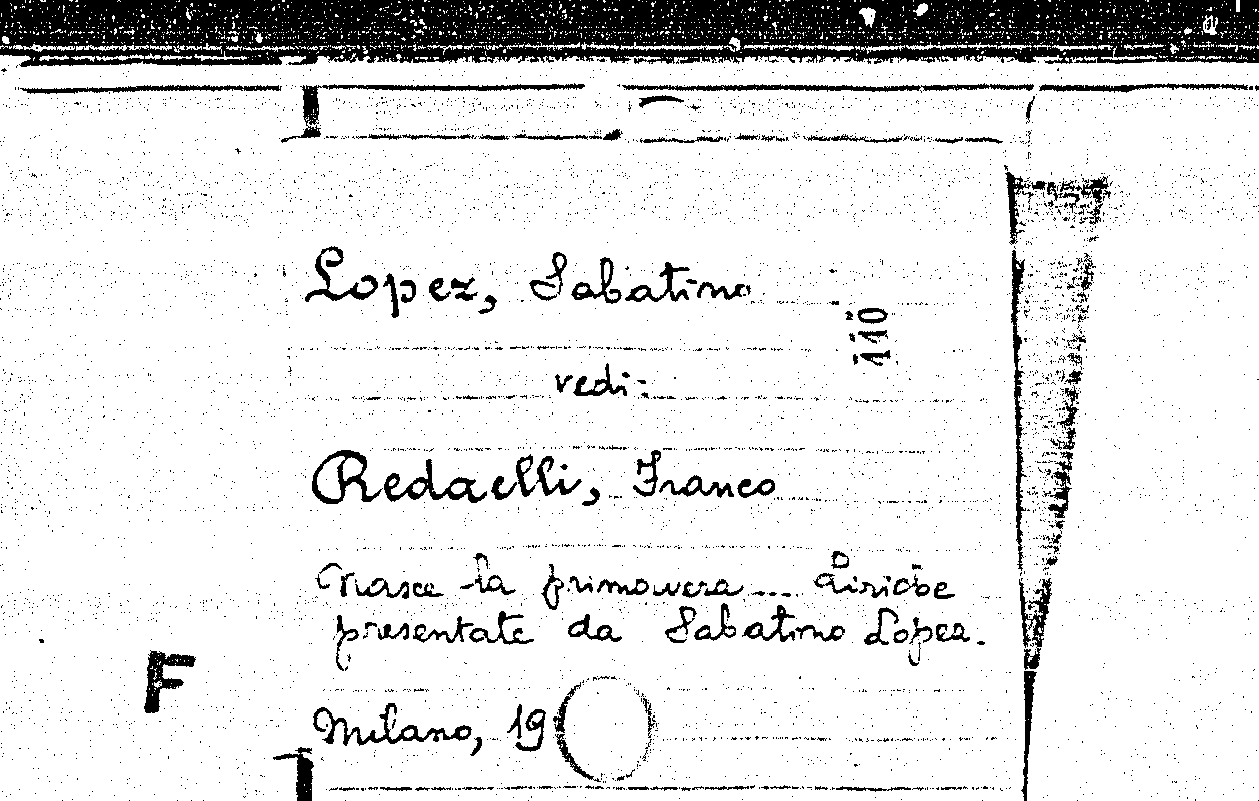 Lopez, Sabatino
110
vedi:
Redaelli, Franco
Nasce la primavera... Liriche
presentate da Sabatino Lopez.
F
Milano, 19